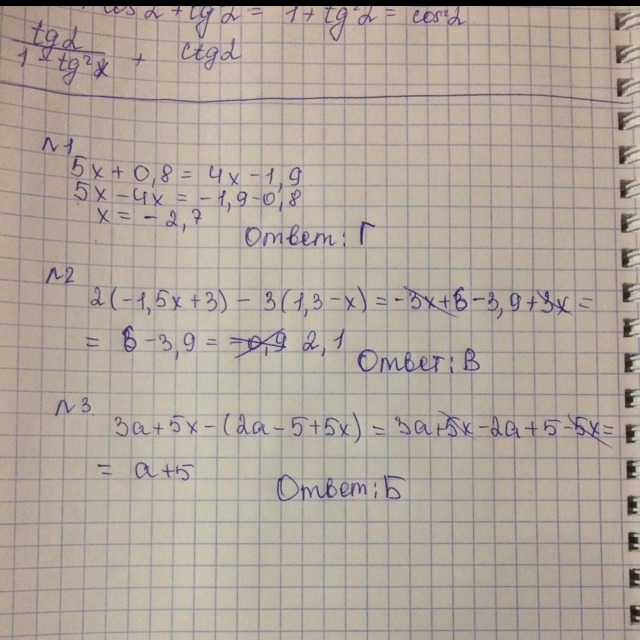 cos²α + tgα = 1 + tg²α = cos²α
tgα / 1 - tg²α + ctgα
№1
5x + 0,8 = 4x - 1,9
5x - 4x = -1,9 - 0,8
x = -2,7
Ответ: Г
№2
2(-1,5x + 3) - 3(1,3 - x) = -3x + 6 - 3,9 + 3x =
= 6 - 3,9 = 2,1
Ответ: В
№3
3a + 5x - (2a - 5 + 5x) = 3a + 5x - 2a + 5 - 5x =
= a + 5
Ответ: Б